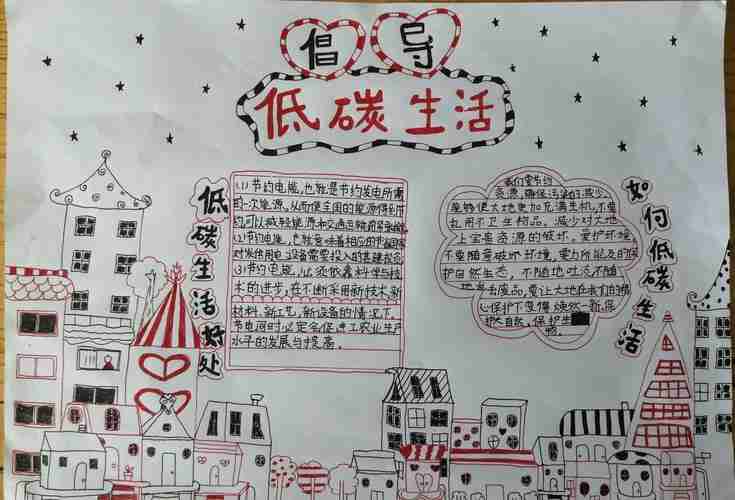 倡导
低碳生活
低碳生活好处
(1)节约电能,也就是节约发电所需
的一次能源。从而使全国的能源得到节
约可以减轻能源和交通运输
(2)节约电能,也就意味着相应的节省国家
对发供用电设备需要投入的基建投资
(3)节约电能,必须依靠科学与技
术的进步,在不断采用新技术、新
材料、新工艺、新设备的情况下,
节电同时必定会促进工农业生产
水平的发展与提高。
我们要节约
资源,确保污染的减少
能够使大地更加充满生机,不要
乱用不卫生物品。减少对大地
上宝贵资源的破坏。爱护环境,
不要随意破坏环境,要力所能及的保
护自然生态,不随地吐痰,不随
地丢废品,要让大地在我们的精
心保护下变得焕然一新,保
护大自然,保护生
物。
如何低碳生活